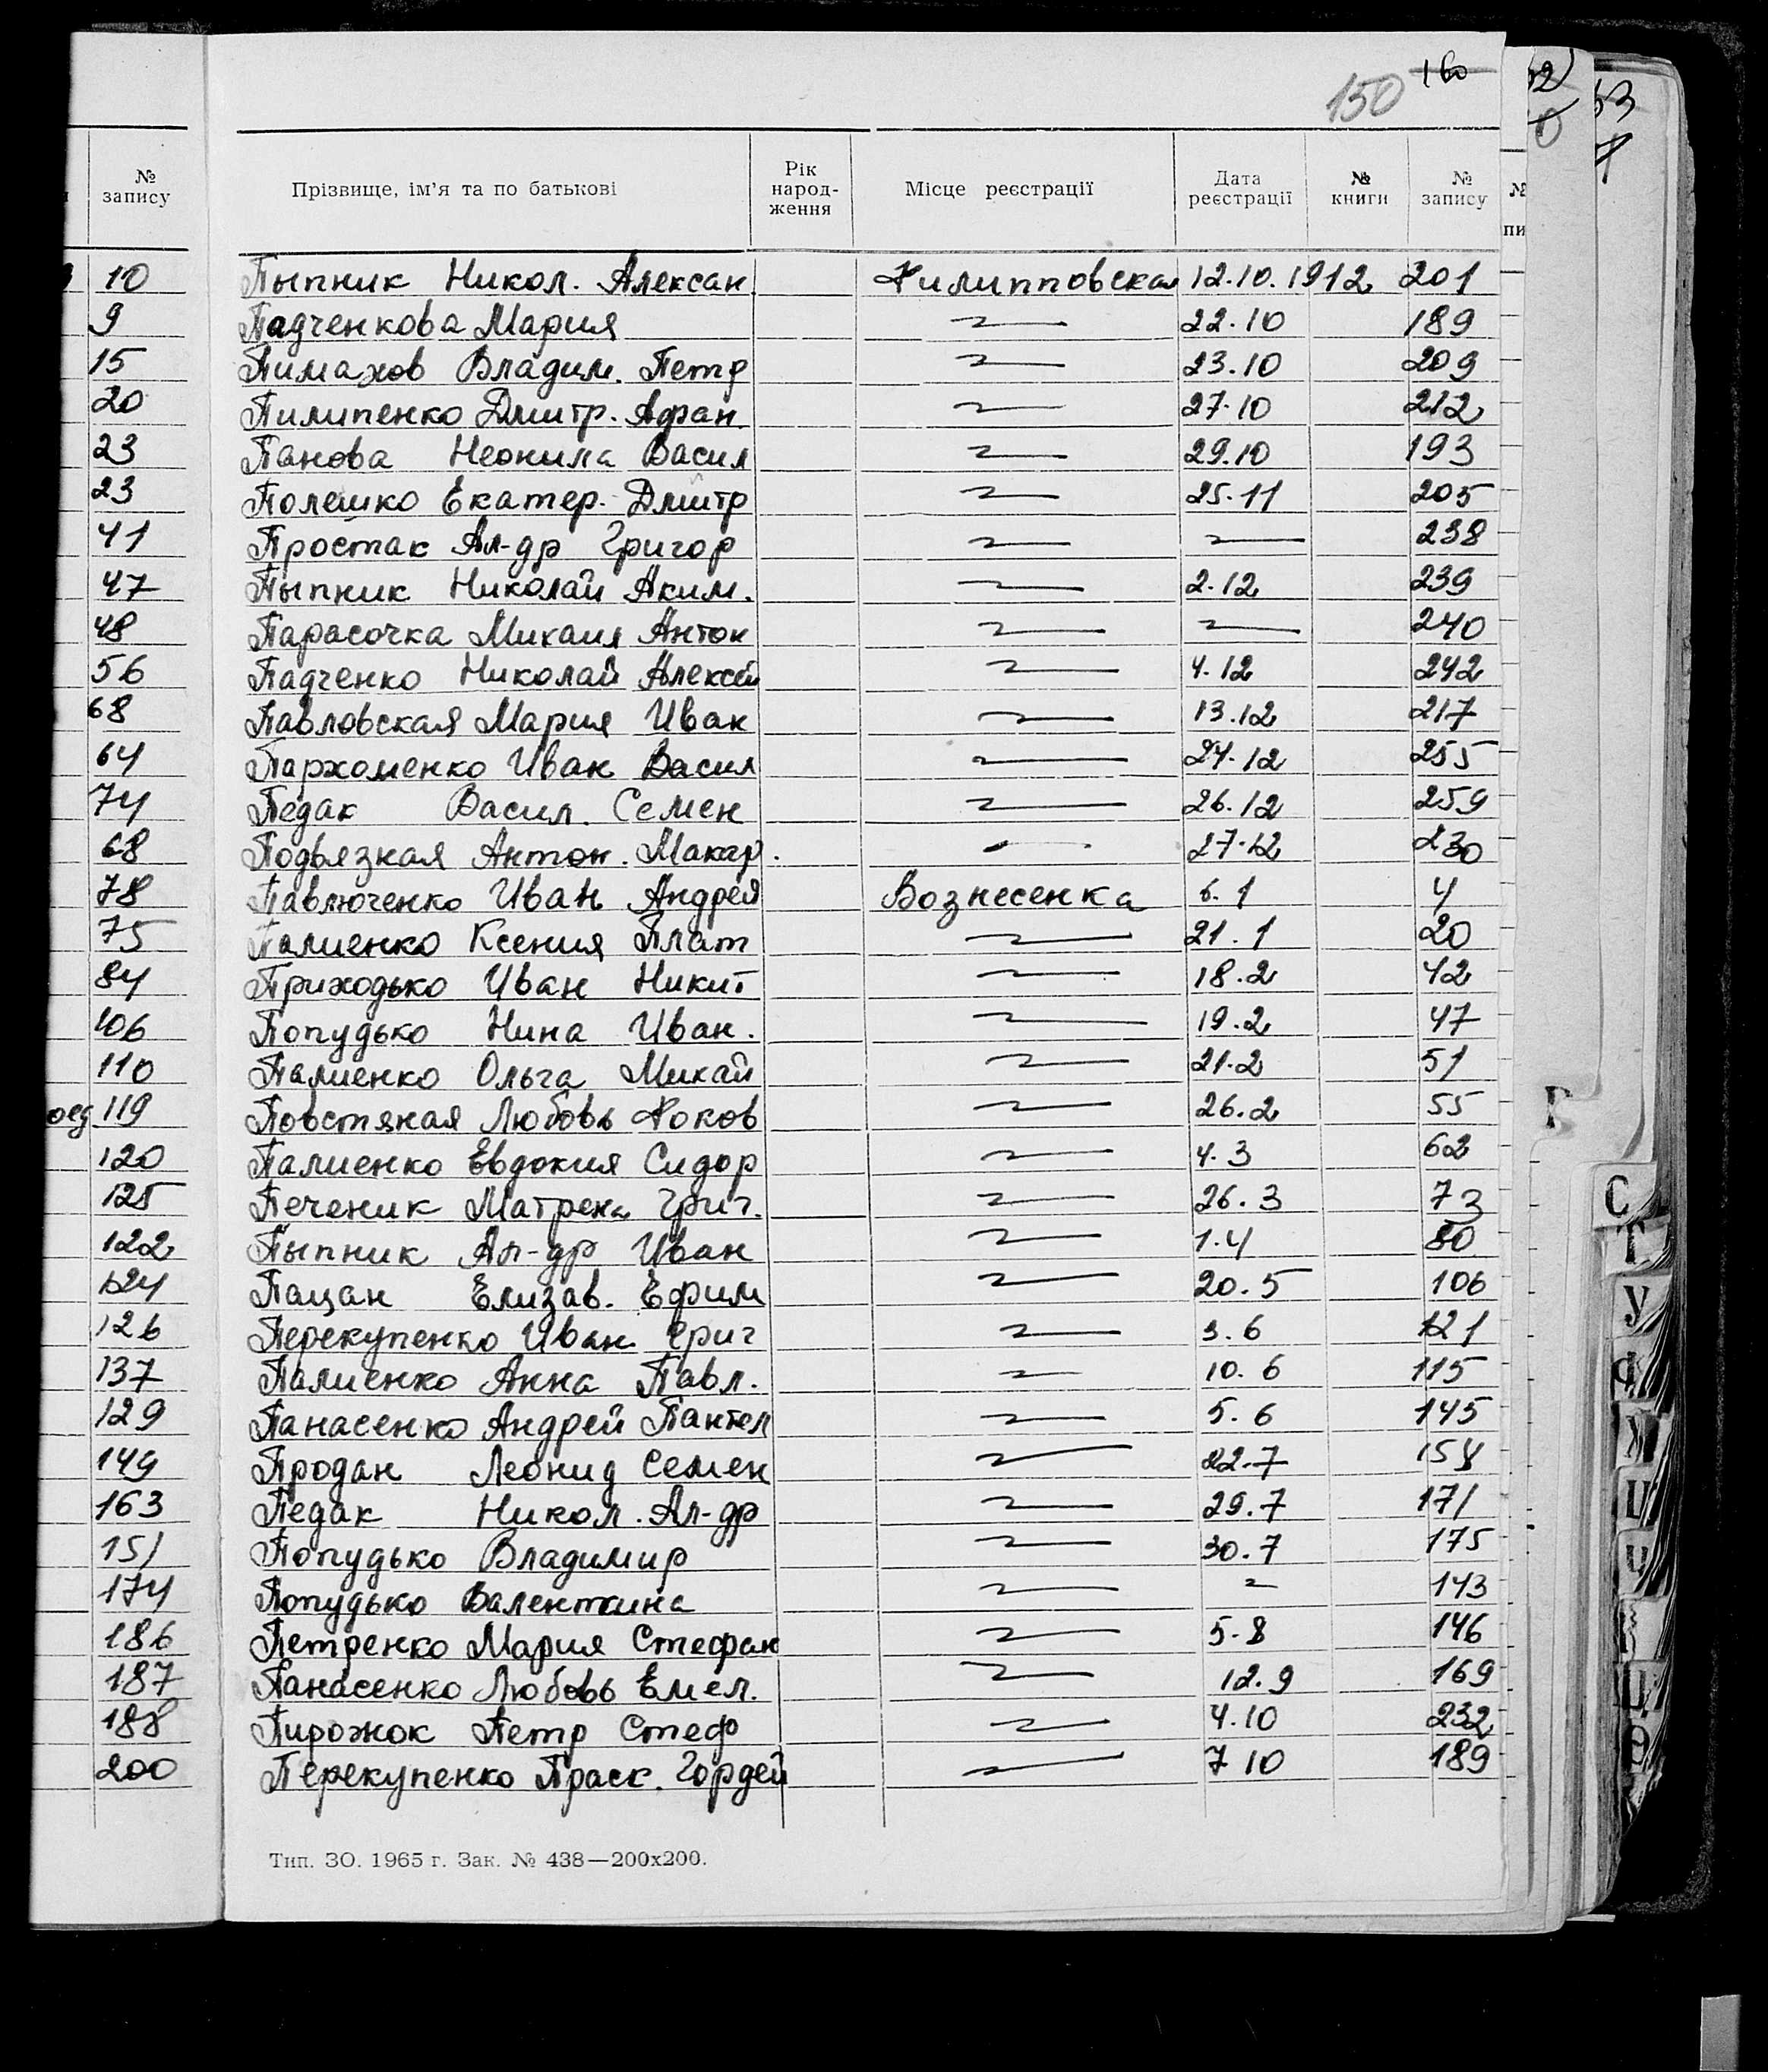 150 160
№ запису
Прізвище, ім'я та по батькові Рік народ-ження Місце реєстрації Дата реєстрації № книги № запису
10 Пыпник Никол. Алексан. Филипповская 12.10.1912 201
9 Падченкова Мария 〃 22.10 189
15 Пимахов Владим. Петр 〃 23.10 209
20 Пилипенко Дмитр. Афан. 〃 27.10 212
23 Панова Неонила Васил 〃 29.10 193
23 Полешко Екатер. Дмитр 〃 25.11 205
41 Простак Ал-др Григор 〃 〃 238
47 Пыпник Николай Аким. 〃 2.12 239
48 Парасочка Михаил Антон 〃 〃 240
56 Падченко Николай Алексей 〃 4.12 242
68 Павловская Мария Иван 〃 13.12 217
64 Пархоменко Иван Васил 〃 24.12 255
74 Педак Васил. Семен 〃 26.12 259
68 Подвязная Антон. Макар. 〃 27.12 230
78 Павлюченко Иван Андрей Вознесенка 6.1 4
75 Палиенко Ксения Плат 〃 21.1 20
84 Приходько Иван Никит 〃 18.2 42
106 Попудько Нина Иван. 〃 19.2 47
110 Палиенко Ольга Михай 〃 21.2 51
119 Повстяная Любовь Фоков 〃 26.2 55
120 Палиенко Евдокия Сидор 〃 4.3 62
125 Печеник Матрена Григ. 〃 26.3 73
122 Пыпник Ал-др Иван 〃 1.4 80
124 Пацан Елизав. Ефим 〃 20.5 106
126 Перекупенко Иван Григ 〃 3.6 121
137 Палиенко Анна Павл. 〃 10.6 115
129 Панасенко Андрей Пантел 〃 5.6 145
149 Продан Леонид Семен 〃 22.7 158
163 Педак Никол. Ал-др 〃 29.7 171
151 Попудько Владимир 〃 30.7 175
174 Попудько Валентина 〃 〃 143
186 Петренко Мария Стефан 〃 5.8 146
187 Панасенко Любовь Емел. 〃 12.9 169
188 Пирожок Петр Стеф 〃 4.10 232
200 Перекупенко Праск. Гордей 〃 7 10 189
Тип. ЗО. 1965 г. Зак. № 438—200х200.
С
Т
У